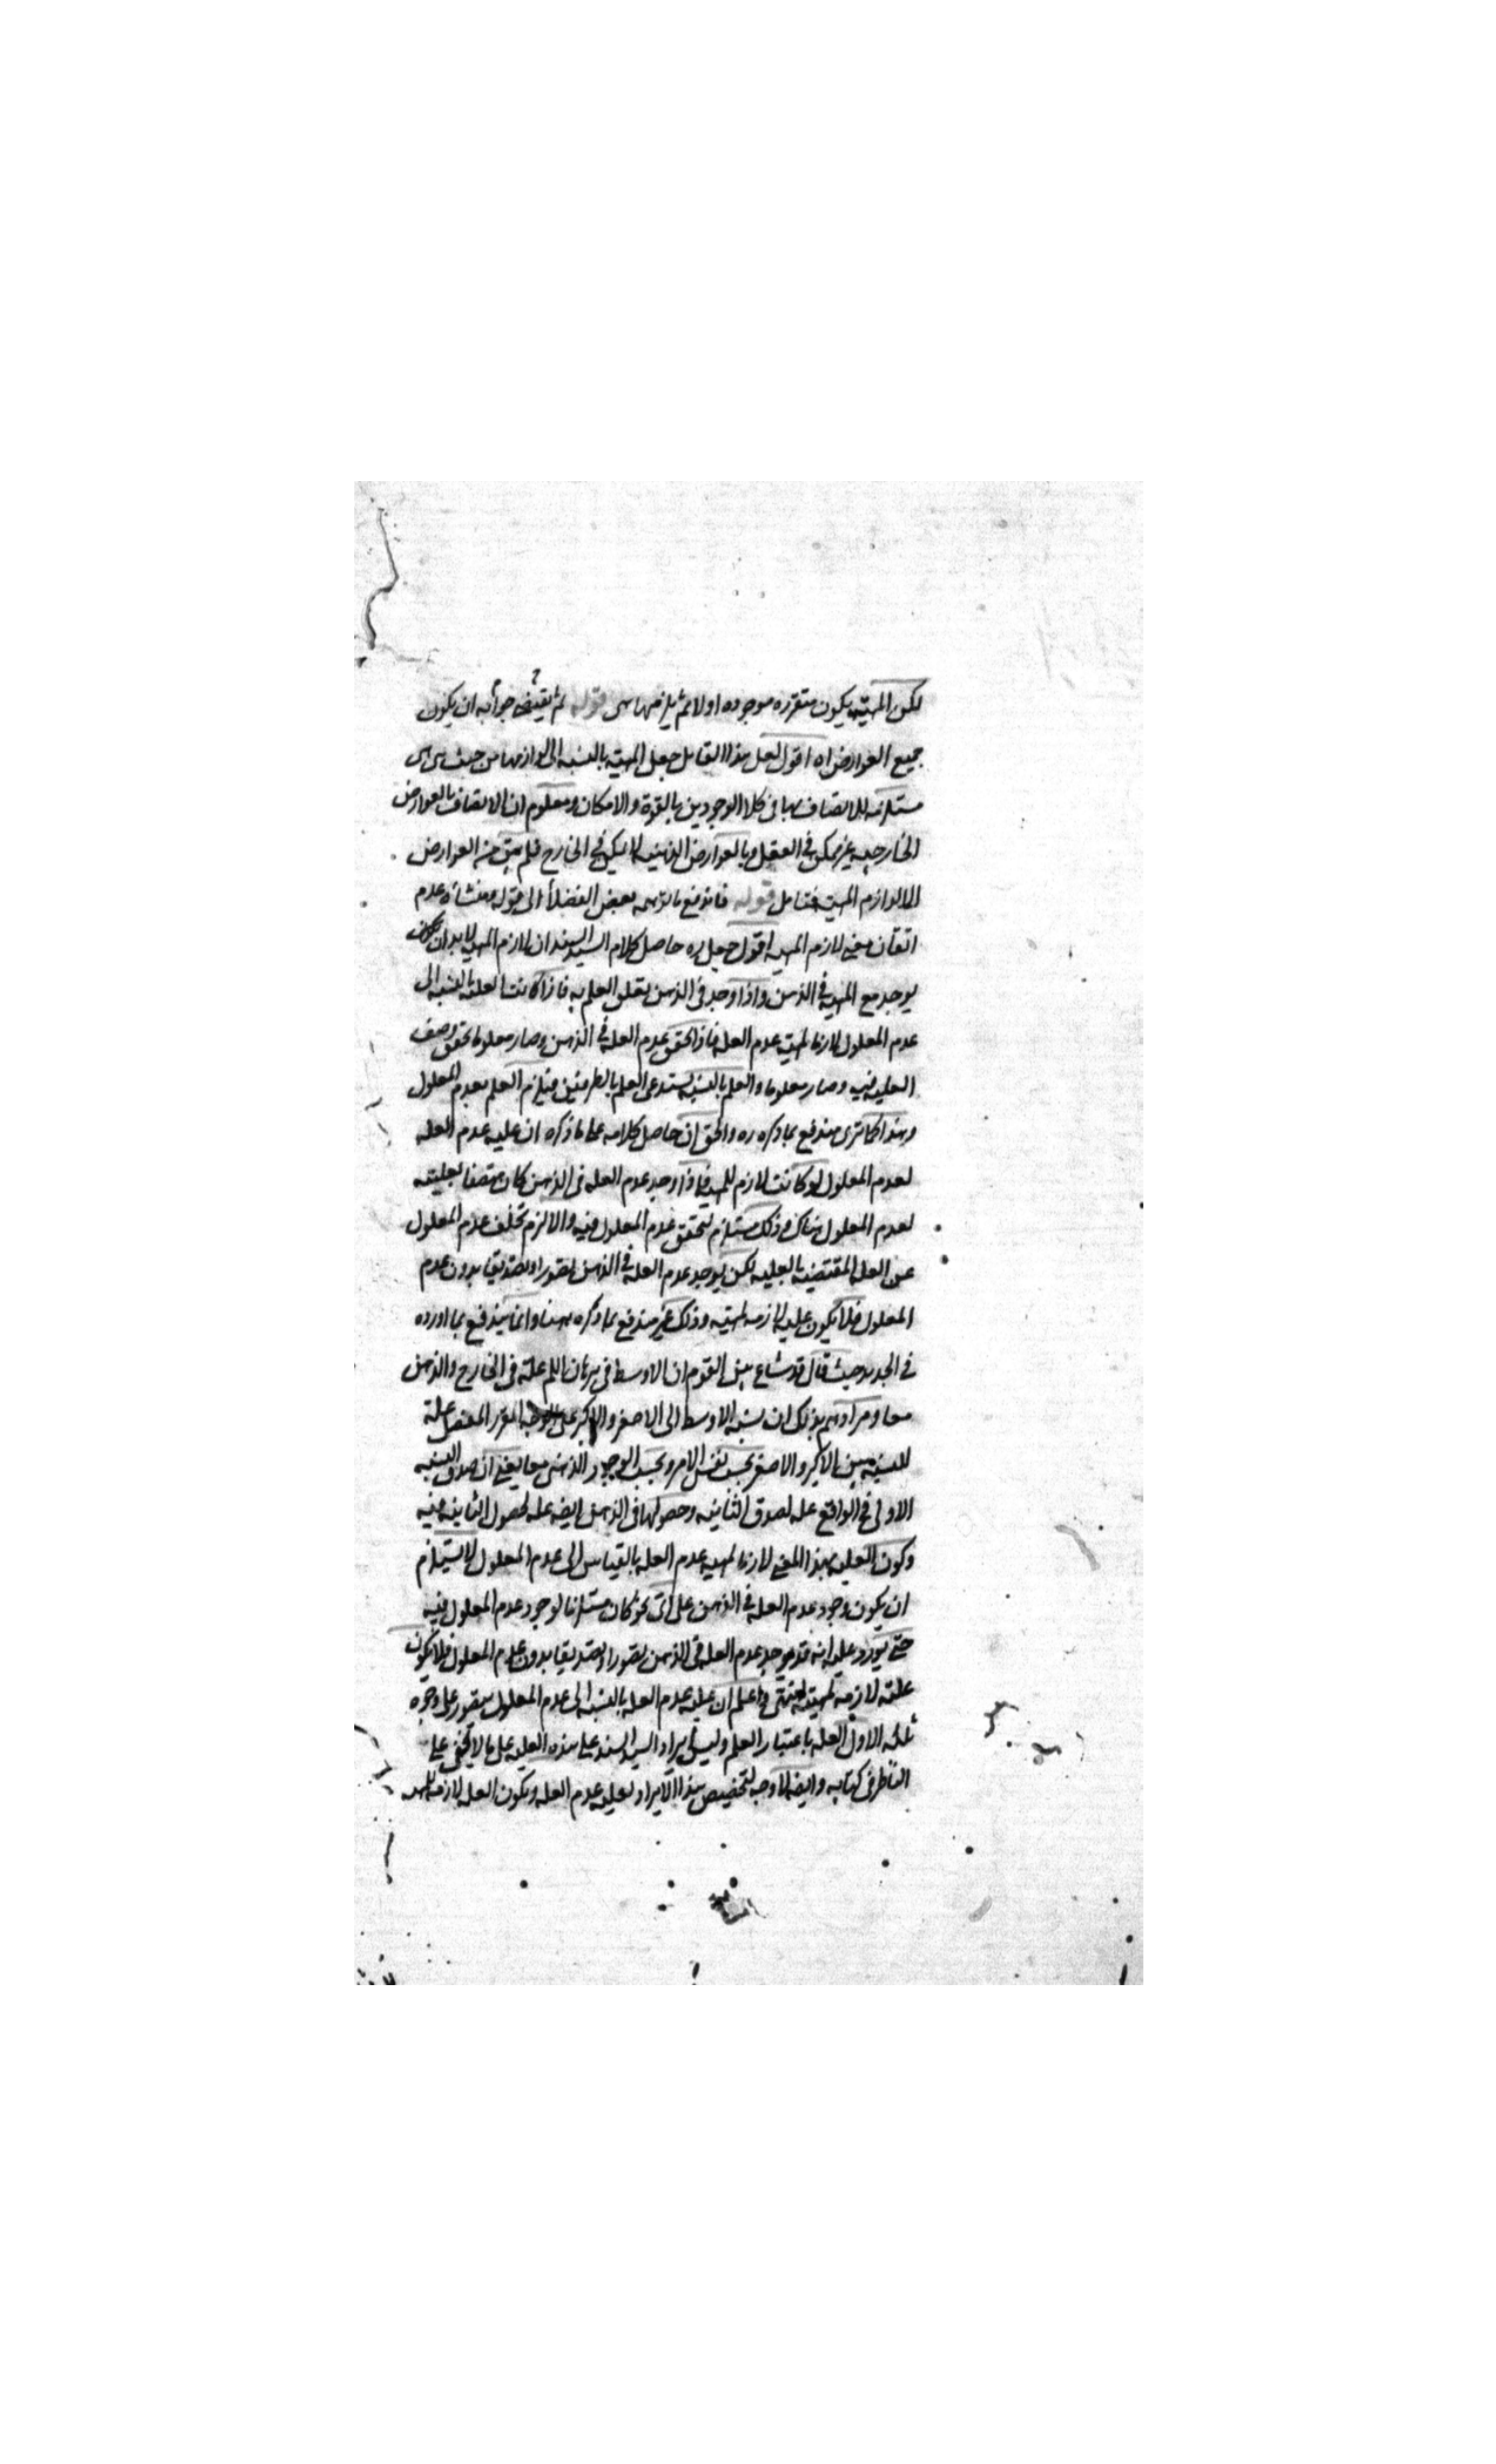 لكن المهية يكون متقرره موجوده اولا ثم يلزمها هى قوله ثم يقيض جوابه ان يكون
جميع العوارض اه اقول لعل هذا القايل جعل المهية بالنسبه الى لوازمها من حيث هى هى
مستلزمه للاتصاف بها فى كلا الوجودين بالقوة والامكان ومعلوم ان الاتصاف بالعوارض
الخارجيه غير ممكن فى العقل وبالعوارض الذهنيه لا يمكن فى الخارج فلم يبق من العوارض
الا لوازم المهية فتامل قوله فاندفع ما توهمه بعض الفضلأ الى قوله ومنشاؤه عدم
اتقان معنى لازم المهيه اقول جعل ره حاصل كلام السيد السند ان لازم المهية لا بد ان
يوجد مع المهية فى الذهن واذا وجد فى الذهن يتعلق العلم به فاذا كانت العلية بالنسبه الى
عدم المعلول لازما لمهية عدم العله فاذا تحقق عدم العله فى الذهن وصار معلوما تحقق وصف
العليه فيه وصار معلوما والعلم بالنسبة يستدعى العلم بالطرفين فيلزم العلم بعدم المعلول
وهذا كما ترى مندفع بما ذكره ره والحق ان حاصل كلامه على ما ذكره ان عليه عدم العله
لعدم المعلول لو كانت لازم للمهية فاذا وجد عدم العله فى الذهن كان متصفا بعليته
لعدم المعلول هناك وذلك مستلزم لتحقق عدم المعلول فيه والا لزم تخلف عدم المعلول
عن العلة المقتضيه بالعليه لكن يوجد عدم العلة فى الذهن تصورا وتصديقا بدون عدم
المعلول فلا يكون عليه لازمه لمهيته وذلك غير مندفع بما ذكره ههنا وانما يندفع بما اورده
فى الجديد حيث قال قد شاع بين القوم ان الاوسط فى برهان اللم علة فى الخارج والذهن
معا ومرادهم بذلك ان نسبة الاوسط الى الاصغر والاكبر على الوجه المقرر المفصل علة
للنسبه بين الاكبر والاصغر بحسب نفس الامر وبحسب الوجود الذهنى معا يعنى ان صدق النسبه
الاولى فى الواقع عله لصدق الثانيه وحصولها فى الذهن ايضه عله لحصول الثانيه فيه
وكون العليه بهذا المعنى لازما لمهيه عدم العله بالقياس الى عدم المعلول لا يستلزم
ان يكون وجود عدم العله فى الذهن على اى نحو كان مستلزما لوجود عدم المعلول فيه
حتى يورد عليه انه قد يوجد عدم العله فى الذهن تصورا وتصديقا بدون عدم المعلول فلا يكون
علته لازمة لمهيته انتهى واعلم ان علية عدم العله بالنسبه الى عدم المعلول يتصور على وجوه
ثلثه الاول العله باعتبار العلم وليس ايراد السيد السند على هذه العليه على ما لا يخفى على
الناظر فى كتابه وايضه لا وجه لتخصيص هذا الايراد بعليه عدم العله ويكون العله لازمه